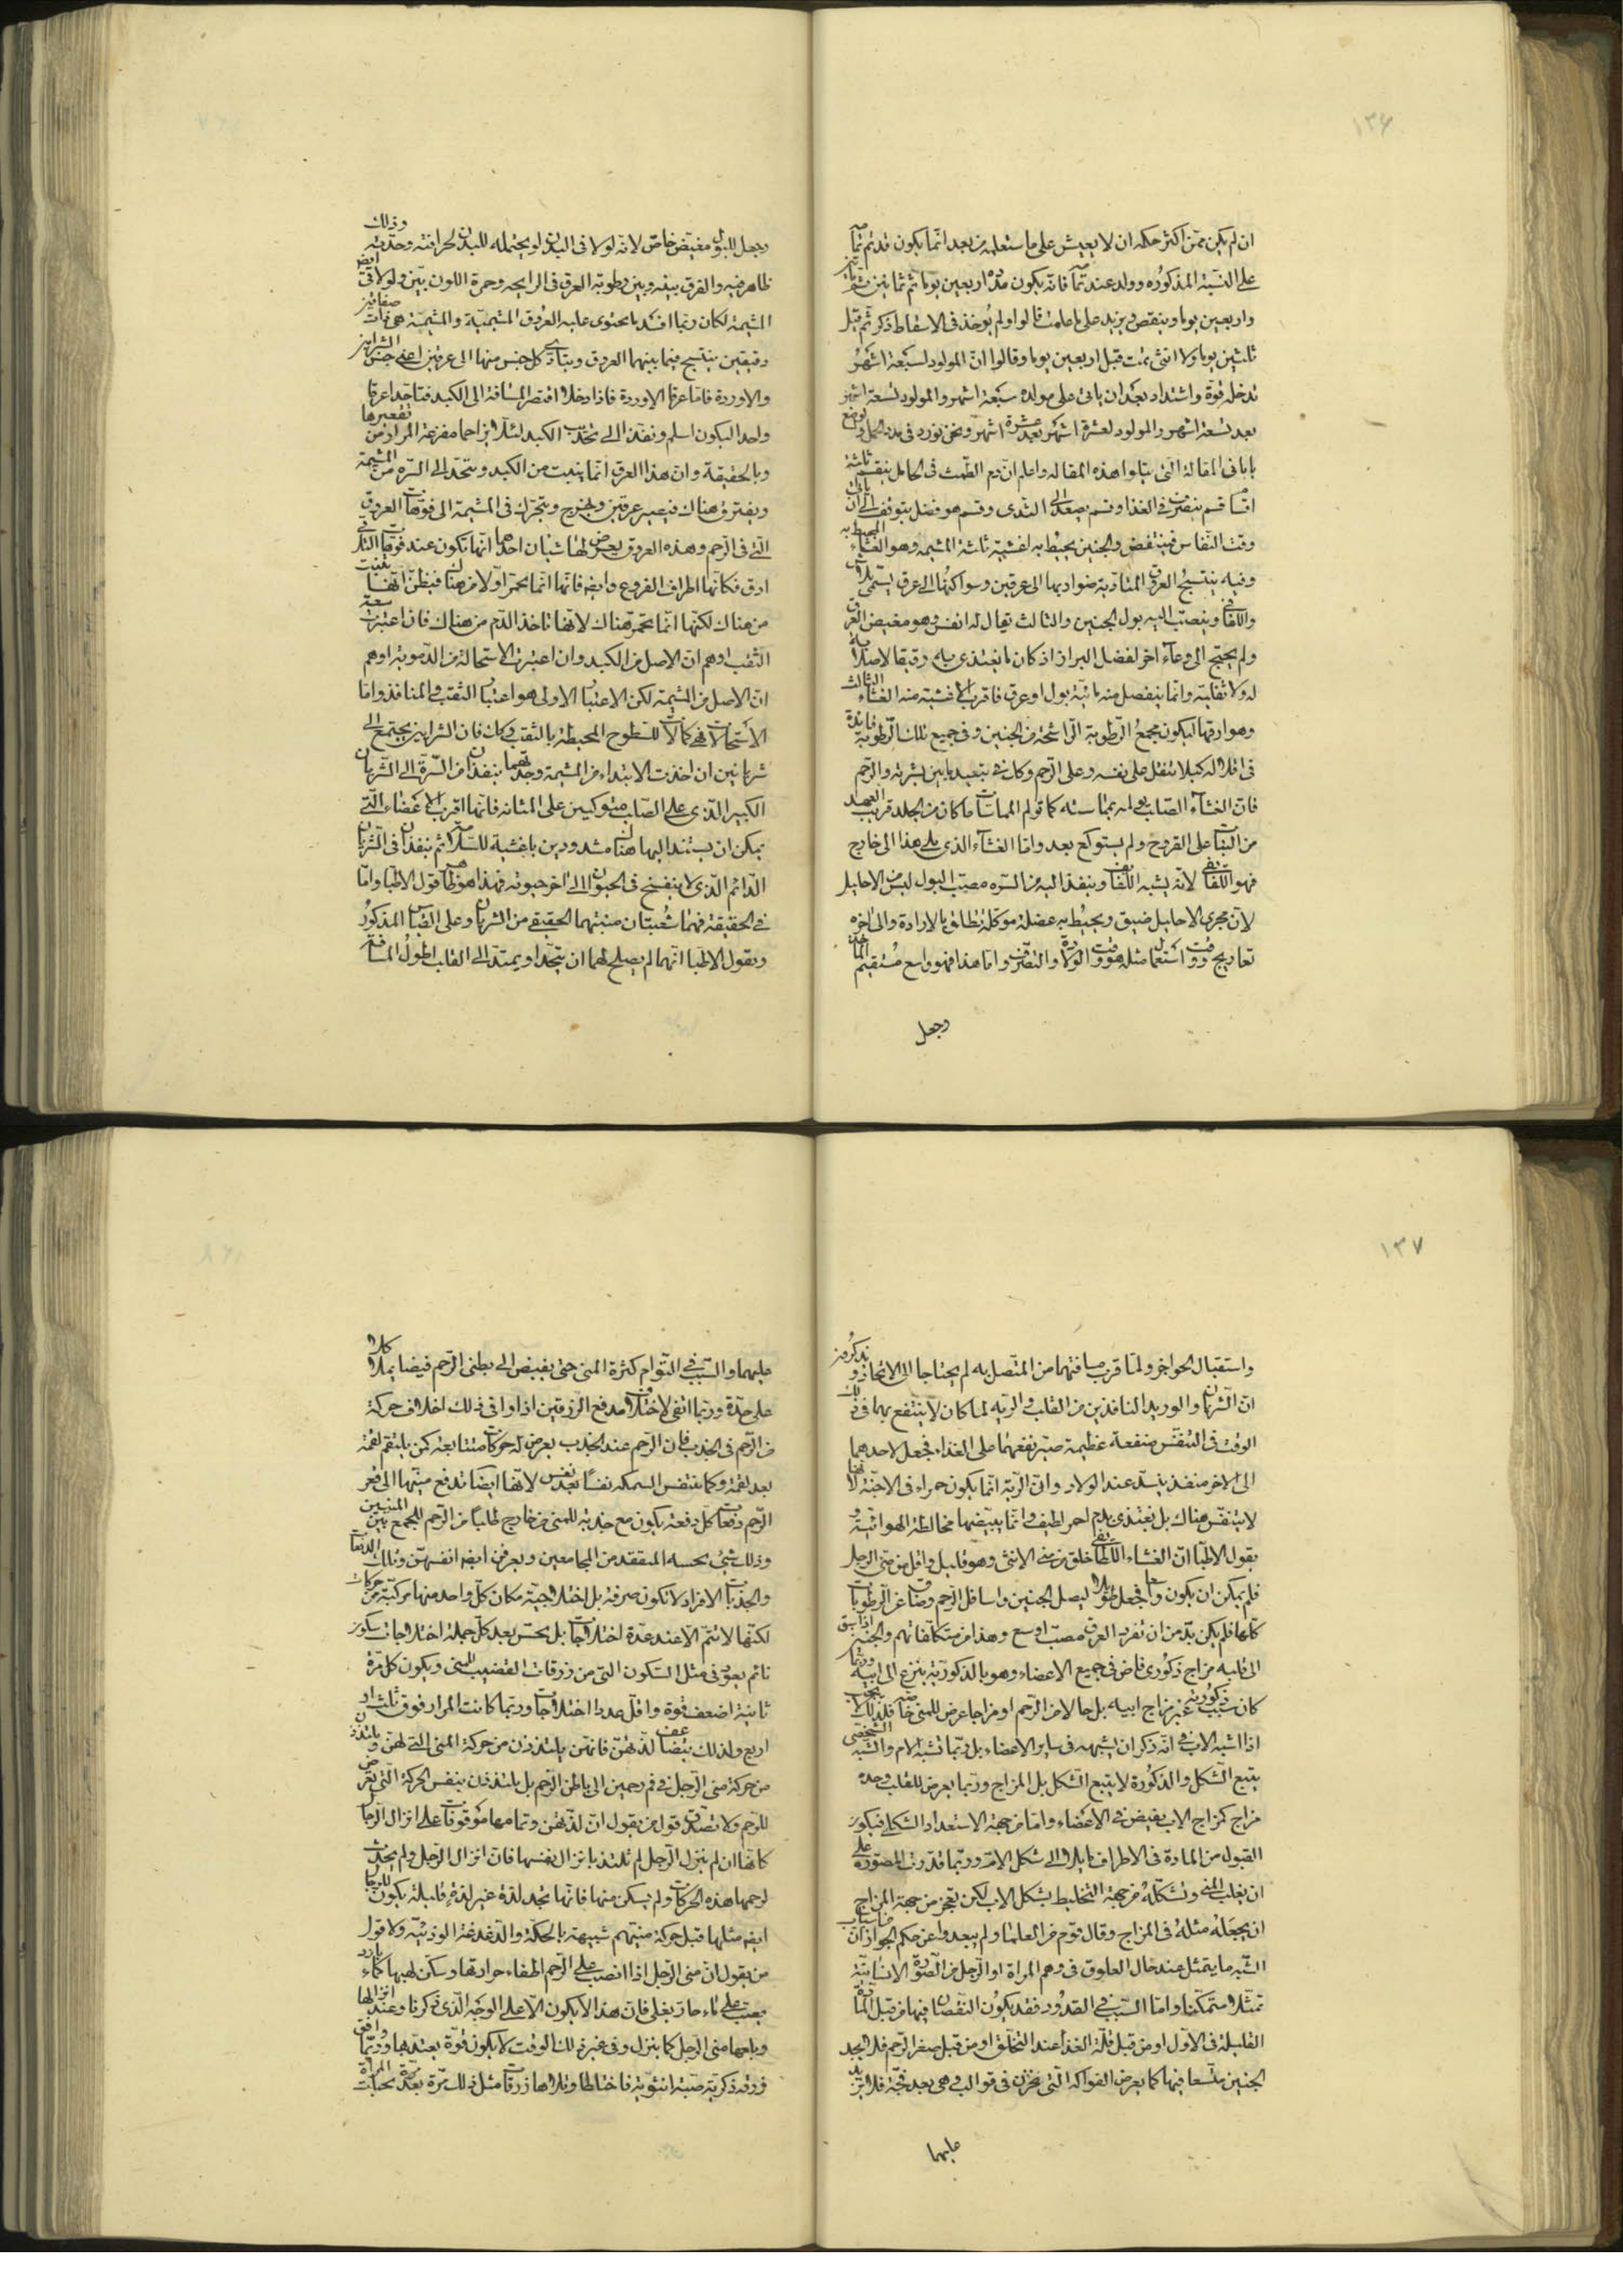 ١٣٦
ان لم يكن ممن اكثر حكمه ان لا يعيش على ما ستعلمه من بعد انما يكون قد تم
على النسبة المذكوره وولد عند فانه يكون مدة اربعين يوما ثم ثمانين
واربعين يوما وينقص ويزيد على ما علمت قالوا ولم يوخذ فى الاسقاط ذكر تم قبل
ثلثين يوما ولا انثى تمت قبل اربعين يوما وقالوا ان المولود لسبعة اشهر
تدخله قوة واشتداد بعد ان ياتى على مولده سبعة اشهر والمولود لتسعة اشهر
بعد تسعة اشهر والمولود لعشرة اشهر بعد عشرة اشهر ونحن نورد فى مدد الحمل والوضع
بابا فى المقالة التى يتلوا هذه المقاله واعلم ان دم الطمث فى الحامل ينقسم ثلثة
اقسا قسم ينصرف فى الغذا وقسم يصعد الى الثدى وقسم هو فضل يتوقف الى ان ياتى
وقت النفاس فينتفض والجنين يحيط به اغشية ثلثة المشيمه وهو الغشاء المحيط به
وفيه ينتسج العروق المتادية ضواربها الى عرقين وسواكنها الى عرق يسمى
واللفا وينصب اليه بول الجنين والثالث يقال له انفس وهو مفيض العرق
ولم يحتج الى وعاء اخر لفضل البراز اذ كان ما يغتذى به رقيقا لا صلابة
له ولا ثفلية وانما ينفصل منه مائية بول او عرق فاقرب الاغشية منه الغشاء الثالث
وهو ارقها ليكون مجمع الرطوبة الراشحة من الجنين وفى جميع تلك الرطوبة فائدة
فى اقلاله كيلا يثقل على نفسه وعلى الرحم وكذلك فى تبعيد ما بين بشرته والرحم
فان الغشاء الصلب يولمه بمماسته كما تولم المماسات ما كان من الجلد قريب العهد
من النبات على القروح ولم يستوكع بعد واما الغشاء الذى يلى هذا الى خارج
فهو اللفايفى لانه يشبه اللفايف وينفذ اليه من السره مصب البول ليس من الاحليل
لان مجرى الاحليل ضيق ويحيط به عضلة موكلة تطلق بالارادة والى اخره
تعاريج ووقت استعمال مثله هو وقت الولادة والتصرف واما هذا فهو واسع مستقيم الماخذ
وجعل
وجعل للبول مفيض خاص لانه لو لا فى البدن لو يحتمله البدن لحرافته وحدته وذلك
ظاهر فيه والفرق بينه وبين رطوبة العرق فى الرايحه وحمرة اللون بين ولو لاقى ايض
المشيمة لكان ربما افسد ما يحتوى عليه العروق المشيمية والمشيمة هى ذات صفاقين
رقيقين ينتسج فيما بينهما العروق ويتادى كل جنس منها الى عرقين اعنى جنس الشرايين
والاوردة فاما عرقا الاوردة فاذا دخلا اقتصر المسافة الى الكبد فتاحدا عرقا
واحدا ليكون اسلم ونفذ الى تحدب الكبد لئلا يزاحما مفرغة المرار من تقعيرها
وبالحقيقة وان هذا العرق انما ينبت من الكبد ويتحد الى السره من المشيمة
ويفترق هناك فيصير عرقين ويخرج ويتحرك فى المشيمة الى فوهات العروق
التى فى الرحم وهذه العروق يعرض لها شيئان احدهما انها تكون عند فوهات التلاقى
ادق فكانها اطراف الفروع وايض فانها انما تحمر اولا من هناك فيظن انها نبتت
من هناك لكنها انما تحمر هناك لانها تاخذ الدم من هناك فان اعتبرت سعة
الثقب اوهم ان الاصل من الكبد وان اعتبرت الاستحالة من الدموية اوهم
ان الاصل من المشيمة لكن الاعتبار الاولى هو اعتبار الثقب والمنافذ واما
الاستحالات فهى كمالات للسطوح المحيطة بالثقب وكان فان الشرايين يجتمع الى
شريانين ان اخذت الابتداء من المشيمة وجدتهما ينفذان من السرة الى الشريان
الكبير الذى على الصلب متوكيين على المثانه فانها اقرب الاعضاء التى
يمكن ان يستند اليها هناك مشدودين باغشية للسلامة ثم ينفذان فى الشريان
الدائم الذى لا ينفسخ فى الحيوان الى اخر حيوته فهذا هو ظاهر قول الاطبا واما
فى الحقيقة فهما شعبتان منبتهما الحقيقى من الشريان وعلى القياس المذكور
ويقول الاطبا انهما لم يصلح لهما ان يتحدا ويمتد الى القلب لطول المسافة
١٣٧
واستقبال الحواجز ولما قرب مسافتهما من المتصل به لم يحتاجا الى الاتحاد ويذكرون
ان الشريان والوريد النافذين من القلب والريه لما كان لا ينتفع بهما فى ذلك
الوقت فى التنفس منفعة عظيمة صير نفعهما على الغذاء فجعل لاحدهما
الى الاخر منفذ ينسد عند الولاد وان الرية انما يكون حمراء فى الاجنة لانها
لا يتنفس هناك بل يغتذى بدم احمر لطيف وانما يبيضها مخالطة الهوائية و
يقول الاطبا ان الغشاء اللفايفى خلق من منى الانثى وهو قليل واقل من منى الرجل
فلم يمكن ان يكون واسعا فجعل طويلا ليصل الجنين واسافل الرحم وضاق عن الرطوبات
كلها فلم يكن بد من ان تفرد العرق مصب اوسع وهذا من متكلفاتهم والجنين اذا سبق
الى قلبه مزاج ذكورى فاض فى جميع الاعضاء وهو بالذكورية ينزع الى ابيه وربما
كان سبب ذكوريته غير مزاج ابيه بل حال من الرحم او مزاج عرض للمنى خاصة فلذلك لا يجب
اذا اشبه الاب فى انه ذكر ان يشبهه فى ساير الاعضاء بل ربما تشبه الام والشبه الشخصى
يتبع الشكل والذكورة لا يتبع الشكل بل المزاج وربما يعرض للقلب وحده
مزاج كمزاج الاب يفيض فى الاعضاء واما من جهة الاستعداد الشكلى فيكون
القبول من المادة فى الاطراف مايلا الى شكل الام وربما قدرت المصورة على
ان يغلب المنى وتشكله من جهة التخطيط بشكل الاب لكن تعجز من جهة المزاج
ان يجعله مثله فى المزاج وقال قوم من العلما ولم يبعدوا عن حكم الجواز ان من اسباب
الشبه ما يتمثل عند حال العلوق فى وهم المراة او الرجل من الصورة الانسانية
تمثلا متمكنا واما السبب فى القدود فقد يكون النقصان فيها من قبل المادة
القليلة فى الاول او من قبل قلة الغذا عند التخلق او من قبل صغر الرحم فلا يجد
الجنين متسعا فيها كما يعرض للفواكه التى تخزن فى قوالب وهى بعد فجة فلا يزيد
عليها
عليهما والسبب فى التوام كثرة المنى حتى يفيض الى بطنى الرحم فيضا يملا كلا
على حدة وربما اتفى لاختلاف مدفع الزرقين اذا وافى ذلك اختلاف حركة
من الرحم فى الجذب فان الرحم عند الجذب يعرض له حركات متتابعة كمن يلتقم لقمة
بعد لقمة وكما يتنفس السمكه نفسا بعد نفس لانها ايضا تدفع منيها الى قعر
الرحم دفعات كل دفعة يكون مع جذبه للمنى من خارج طلبا من الرحم للجمع بين المنيين
وذلك شئ يحسه المتفقد من المجامعين ويعرفن ايض انفسهن وتلك الدفعات
والجذبات الافراد لا تكون صرفة بل اختلاجية مكان كل واحد منها مركبة من حركات
لكنها لا تتم الا عند عدة اختلاجات بل يحس بعد كل جملة اختلاجات سكون
ثائم يعود فى مثل السكون التى من زرقات القضيب للمنى ويكون كل مرة
ثانية اضعف قوة واقل عددا اختلاجات وربما كانت المرار فوق ثلث او
اربع ولذلك يتضاعف لذتهن فانهن يلتذذن من حركة المنى التى لهن ويلتذذن
من حركة منى الرجل فى فم رحمهن الى باطن الرحم بل يلتذذن بنفس الحركة التى تعرض
للرحم ولا تصدق قول من يقول ان لذتهن وتمامها موقوفات على انزال الرجل
كانها ان لم ينزل الرجل لم تلتذ بانزال نفسها فان انزال الرجل ولم يحدث
لرحمها هذه الحركات ولم يسكن منها فانها تجد لذة غير لذة قليلة يكون للرجال
ايض مثلها قبل حركة منيهم شبيهة بالحكة والدغدغة الوذئية ولا قول
من يقول ان منى الرجل اذا انصب على الرحم اطفاء حرارتها وسكن لهيبها كماء بارد
يصب على ماء حار يغلى فان هذا لا يكون الا على الوجه الذى ذكرنا وعند انزالها
وبلعها منى الرجل كما ينزل وفى غير ذلك الوقت لا يكون قوة يعتد بها وربما وافق
زرقة ذكرية صبة انثوية فاختلطا ويلاها زرقات مثل ذلك مرة بعد مرة